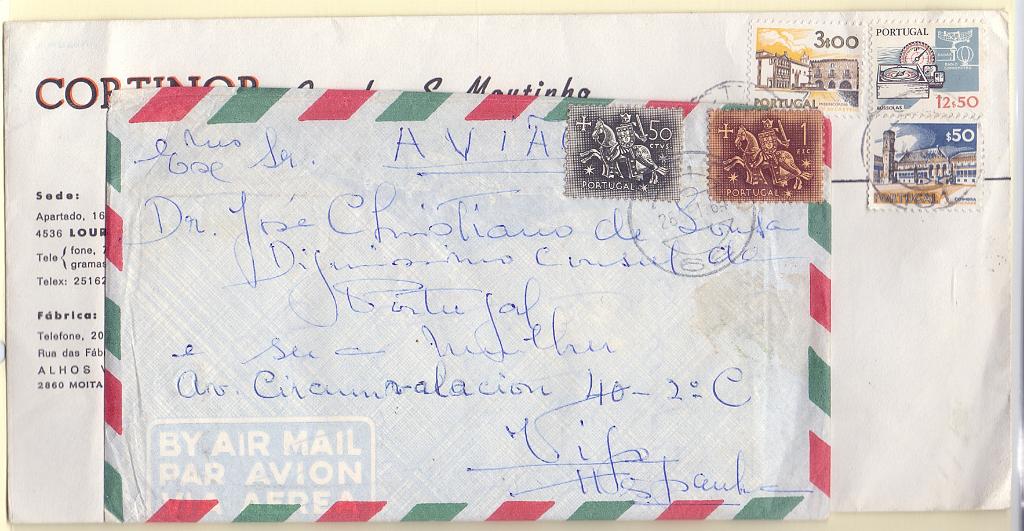 CORTINOR
S. Moutinho
Sede:
Apartado, 16
4536 LOUR
Tele { fone, 7
gramas
Telex: 25162
Fábrica:
Telefone, 20
Rua das Fáb
ALHOS V
2860 MOITA
3$00
PORTUGAL
PORTUGAL
BÚSSOLAS
12$50
$50
PORTUGAL
COIMBRA
AVIÃO
Exmo Sr.
Dr. José Christiano de Sousa
Digníssimo Consul de
Portugal
e sua mulher
Av. Circunvalacion 40-2º C
Vigo
Hespanha
50 CTVS
PORTUGAL
1 ESC
PORTUGAL
BY AIR MAIL
PAR AVION
VIA AEREA